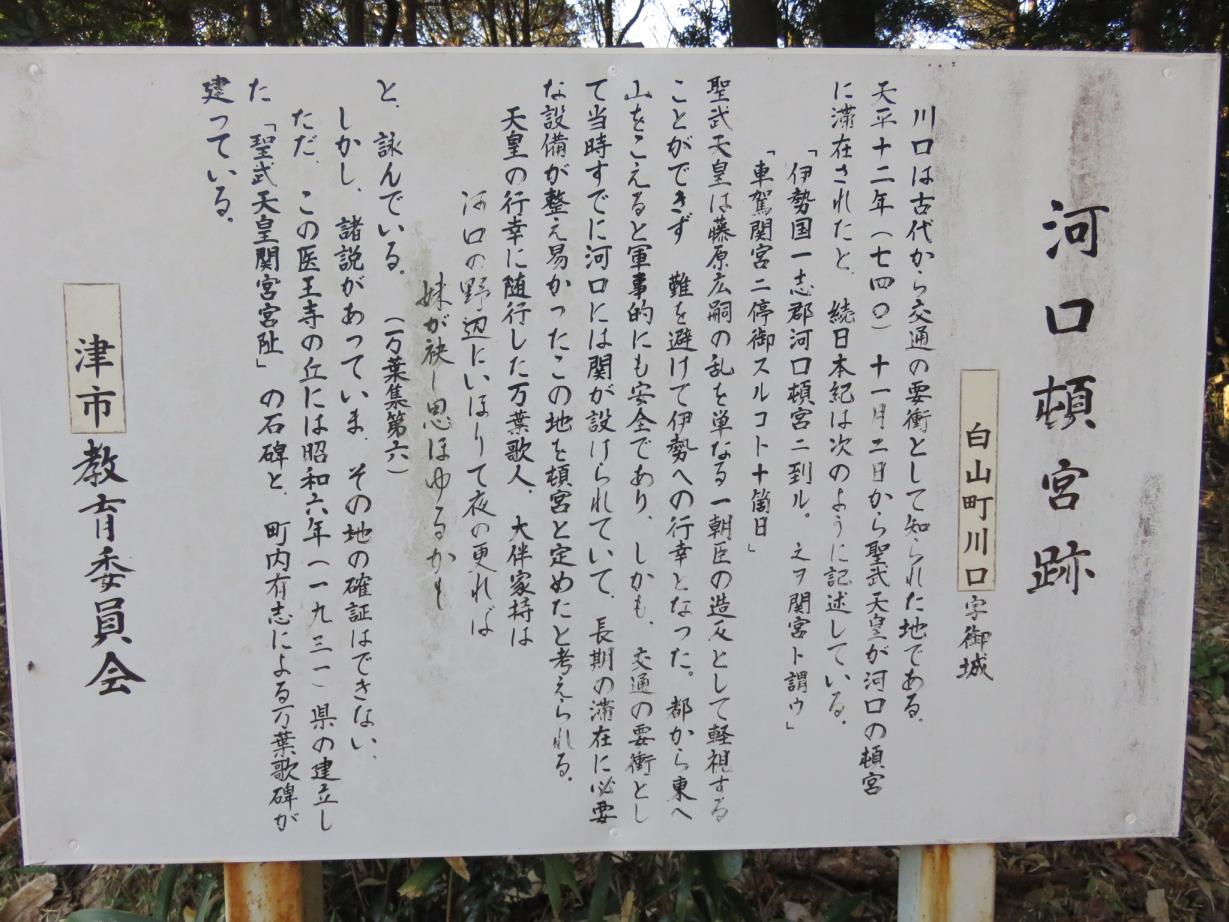 河口頓宮跡
白山町川口字御城
川口は古代から交通の要衝として知られた地である。
天平十二年(七四〇)十一月二日から聖武天皇が河口の頓宮
に滞在されたと、続日本紀は次のように記述している。
「伊勢国一志郡河口頓宮ニ到ル。之ヲ関宮ト謂ゥ」
「車駕関宮ニ停御スルコト十箇日」
聖武天皇は藤原広嗣の乱を単なる一朝臣の造反として軽視する
ことができず 難を避けて伊勢への行幸となった。都から東へ
山をこえると軍事的にも安全であり、しかも、交通の要衝とし
て当時すでに河口には関が設けられていて、長期の滞在に必要
な設備が整え易かったこの地を頓宮と定めたと考えられる。
天皇の行幸に随行した万葉歌人、大伴家持は
河口の野辺にいほりて夜の更れば
妹が袂し思ほゆるかも
と、詠んでいる。(万葉集第六)
しかし、諸説があっていま、その地の確証はできない、
ただ、この医王寺の丘には昭和六年(一九三一)県の建立し
た「聖武天皇関宮宮阯」の石碑と、町内有志による万葉歌碑が
建っている。
津市教育委員会